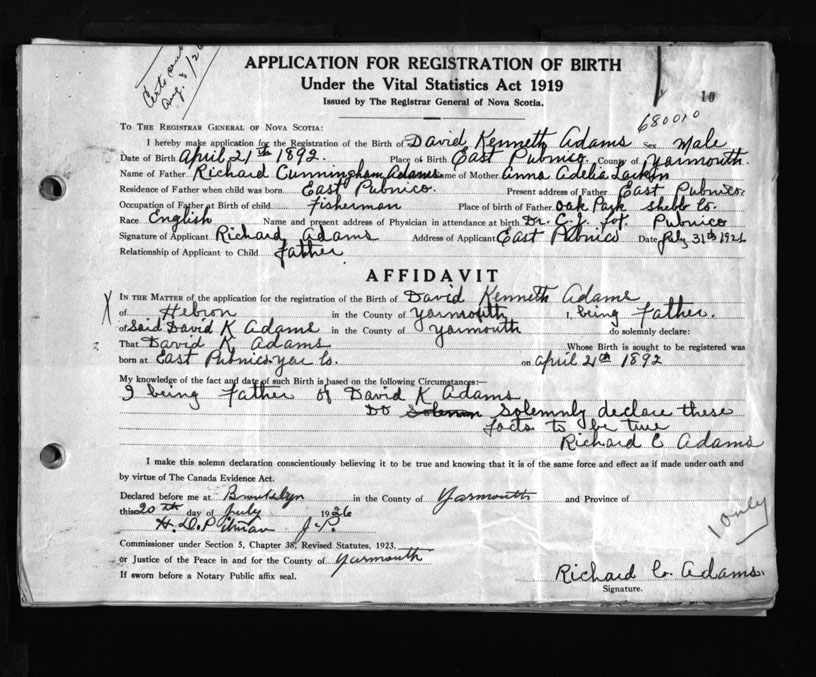 APPLICATION FOR REGISTRATION OF BIRTH
Under the Vital Statistics Act 1919
Issued by The Registrar General of Nova Scotia.
10
680010
TO THE REGISTRAR GENERAL OF NOVA SCOTIA:
I hereby make application for the Registration of the Birth of David Kenneth Adams Sex Male
Date of Birth April 21th 1892. Place of Birth East Pubnico County of Yarmouth.
Name of Father Richard Cunningham Adams Name of Mother Anna Adelia Larkin
Residence of Father when child was born East Pubnico. Present address of Father East Pubnico
Occupation of Father at Birth of child Fisherman Place of birth of Father Oak Park Shelb Co.
Race English Name and present address of Physician in attendance at birth Dr. C. J. Fox. Pubnico
Signature of Applicant Richard Adams Address of Applicant East Pubnico Date July 31th
Relationship of Applicant to Child Father
AFFIDAVIT
X IN THE MATTER of the application for the registration of the Birth of David Kenneth Adams
of Hebron in the County of Yarmouth I, being Father.
of Said David K Adams in the County of Yarmouth do solemnly declare:
That David K Adams Whose Birth is sought to be registered was
born at East Pubnico Yar Co. on April 21th 1892
My knowledge of the fact and date of such Birth is based on the following Circumstances:—
I being Father of David K Adams
Do Solemnly declare these
facts to be true
Richard C Adams
I make this solemn declaration conscientiously believing it to be true and knowing that it is of the same force and effect as if made under oath and
by virtue of The Canada Evidence Act.
Declared before me at in the County of Yarmouth and Province of
this 20th day of July 1926
H. D. Pitman J.P.
1 only
Commissioner under Section 5, Chapter 38, Revised Statutes, 1923.
or Justice of the Peace in and for the County of Yarmouth
If sworn before a Notary Public affix seal.
Richard C. Adams.
Signature.